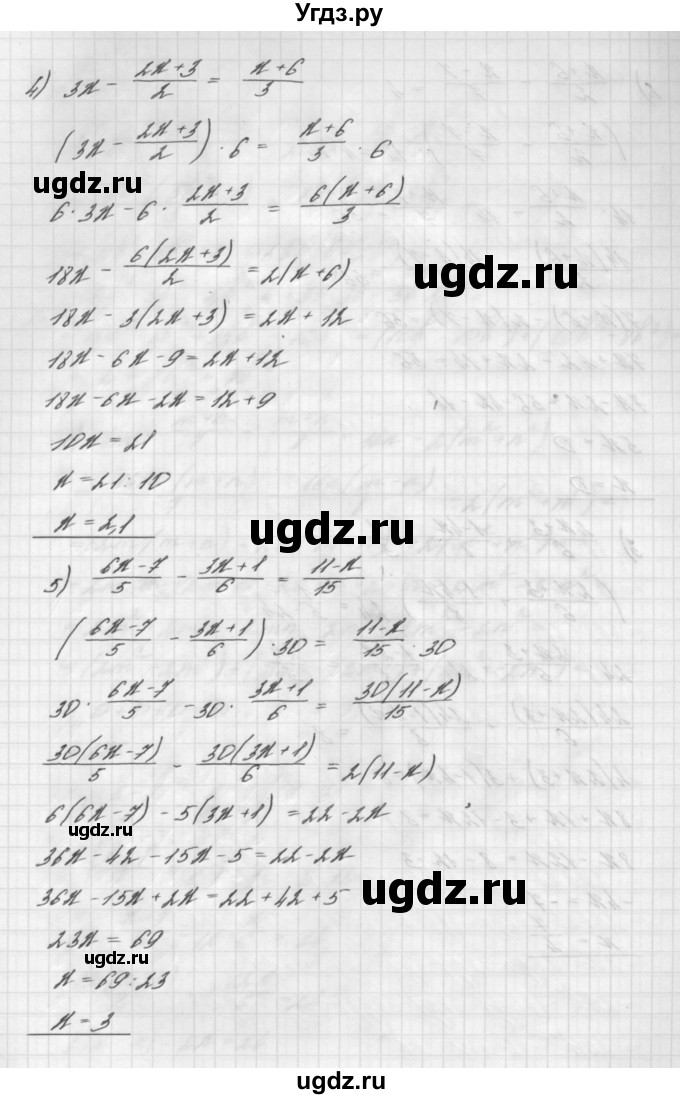 Угдз.ру
4) 3x - (2x+3)/2 = (x+6)/3
(3x - (2x+3)/2) · 6 = (x+6)/3 · 6
ugdz.ru
6 · 3x - 6 · (2x+3)/2 = 6(x+6)/3
18x - 6(2x+3)/2 = 2(x+6)
ugdz.ru
18x - 3(2x+3) = 2x + 12
18x - 6x - 9 = 2x + 12
18x - 6x - 2x = 12 + 9
10x = 21
x = 21 : 10
x = 2,1
ugdz.ru
5) (6x-7)/5 - (3x+1)/6 = (11-x)/15
((6x-7)/5 - (3x+1)/6) · 30 = (11-x)/15 · 30
30 · (6x-7)/5 - 30 · (3x+1)/6 = 30(11-x)/15
30(6x-7)/5 - 30(3x+1)/6 = 2(11-x)
6(6x-7) - 5(3x+1) = 22 - 2x
ugdz.ru
36x - 42 - 15x - 5 = 22 - 2x
36x - 15x + 2x = 22 + 42 + 5
ugdz.ru
23x = 69
ugdz.ru
x = 69 : 23
x = 3
ugdz.ru